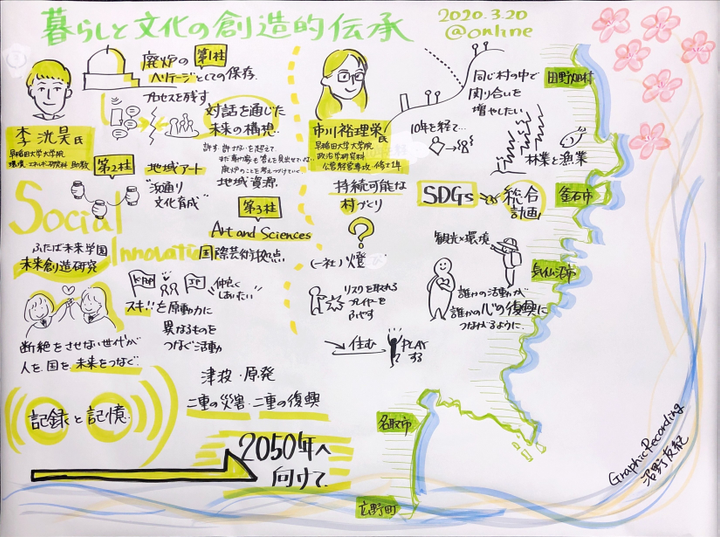 暮らしと文化の創造的伝承
2020.3.20
@online
李 洸昊氏
早稲田大学大学院
環境・エネルギー研究科 助教
廃炉の
第1柱
ヘリテージとしての保存.
プロセスを残す
対話を通じた
未来の構想.
地域資源.
第2柱
地域アート
"浜通り
文化育成"
第3柱
Art and Sciences
国際芸術拠点
Social
Innovation
ふたば未来学園
未来創造研究
仲良く
しあいたい"
スキ!!を原動力に
異なるものを
つなぐ活動
断絶をさせない世代が
人を国を未来をつなぐ
津波・原発
二重の災害・二重の復興
記録と記憶
2050年へ
向けて
市川裕理栄氏
早稲田大学大学院
政治学研究科
公共経営専攻 修士1年
同じ村の中で
関り合いを
増やしたい
10年を経て…
持続可能な
村づくり
(一社)燈
リスクを取れる
プレイヤーを
ふやす
→住む
PLAY
する
林業と漁業
SDGs
総合
計画
観光×環境
誰かの活動が
誰かの心の復興に
つながるように
田野畑村
釜石市
気仙沼市
名取市
広野町
GraphicRecording
沼野友紀